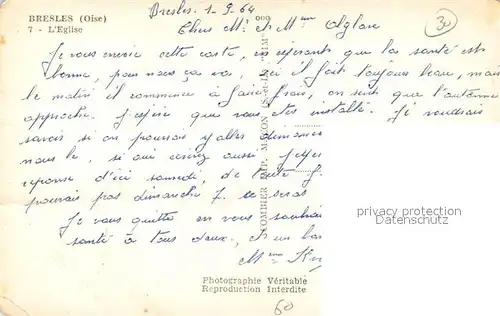 BRESLES (Oise)
7 - L'Eglise
Bresles. 1-9-64
30
Chers Mr et Mme
Je vous envoie cette carte, en espérant que la santé est
bonne, pour nous ça va, ici il fait toujours beau, mais
le matin il commence à faire frais, on sent que l'automne
approche. J'espère que vous êtes installé. Je voudrais
savoir si on pourrais y aller dimanche
nous le, si oui aussi
réponse d'ici samedi, de suite
pourrais pas dimanche 7. ce seras
Je vous quittes en vous souhai
santé à tous deux, et un bon
Mme
COMBIER IMP. MACON (S.-et-L.) "CIM"
Photographie Véritable
Reproduction Interdite
60
privacy protection